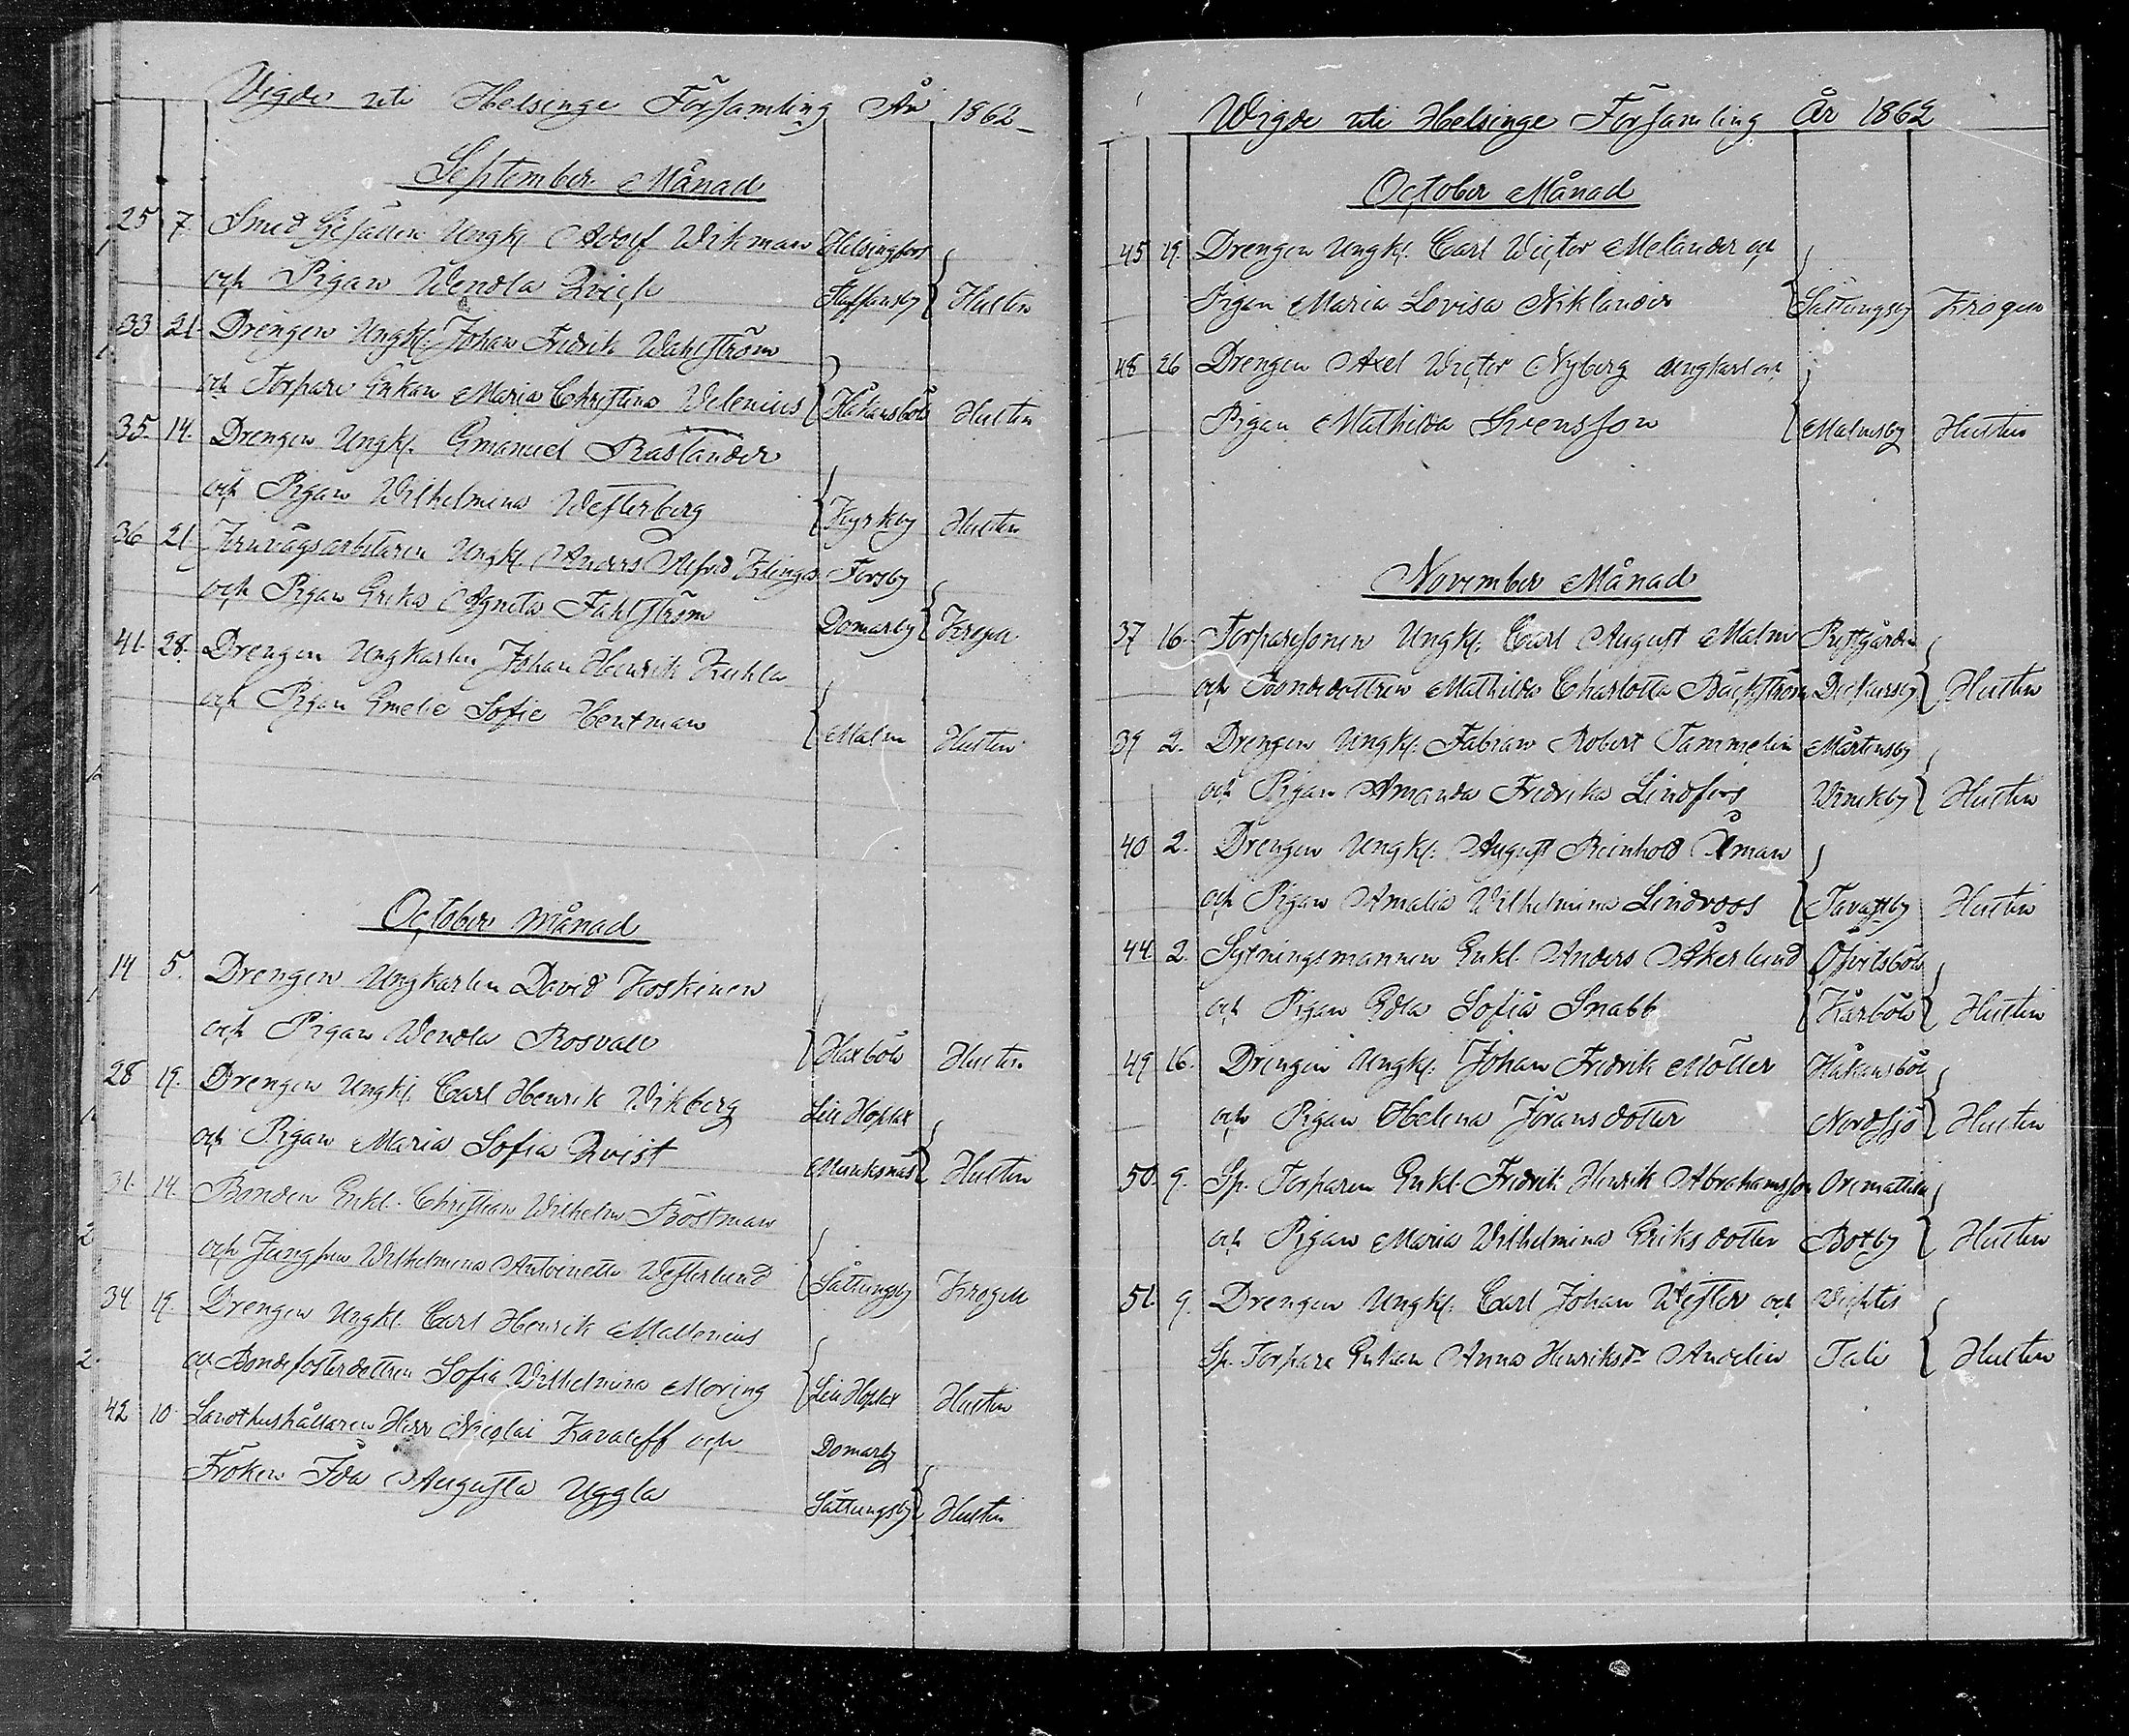 Vigde uti Helsinge Församling År 1862
September Månad
25 7. Smed Gesällen Ungk. Adolf Wikman Helsingfors
och Pigan Wendla Qvick Staffansby Hultin
33 21. Drengen Ungk. Johan Fredrik Wahlström
och Torpare Enkan Maria Christina Velenius Håkansböle Hultin
35. 14. Drengen Ungk. Emanuel Rastander
och Pigan Wilhelmina Westerberg Kyrkby Hultin
36 21 Jernvägsarbetaren Ungk. Anders Alfred Forsby
och Pigan Erika Agneta Fahlström Domarby Krogell
41. 28. Drengen Ungkarlen Johan Henrik
och Pigan Emelie Sofie Hentman Malm Hultin
October Månad
14 5. Drengen Ungkarlen David Koskinen
och Pigan Wendla Rosvall Haxböle Hultin
28 19. Drengen Ungk. Carl Henrik Wikberg Lill Hoplax
och Pigan Maria Sofia Qvist Munksnäs Hultin
31. 14. Bonden Enkl. Christian Wilhelm Böstman
och Jungfrun Wilhelmina Antoinette Westerlund Sättungsby Krogell
34 19. Drengen Ungk. Carl Henrik Mallenius
och Bondefosterdottren Sofia Wilhelmina Moring Lill Hoplax Hultin
42 10 Landthushållaren Herr Nicolai Kavaleff och Domarby
Fröken Ida Augusta Uggla Sättungsby Hultin
Wigde uti Helsinge Församling År 1862
October Månad
45 19. Drengen Ungk. Carl Wictor Melander och
Pigan Maria Lovisa Niklander Sättungsby Krogell
48 26 Drengen Axel Wictor Nyberg Ungkarl och
Pigan Mathilda Svensson Malmsby Hultin
November Månad
37 16. Torparesonen Ungk. Carl August Malm
och Bondedottren Mathilda Charlotta Bäckström Dickursby Hultin
39 2. Drengen Ungk. Fabian Robert Tammelin Mårtensby
och Pigan Amanda Fredrika Lindfors Winikby Hultin
40 2. Drengen Ungk. August Reinhold Åman
och Pigan Amalia Wilhelmina Lindroos Tavastby Hultin
44. 2. Sytningsmannen Enkl. Anders Åkerlund Öfvitsböle
och Pigan Edla Sofia Snabb Kårböle Hultin
49 16. Drengen Ungk. Johan Fredrik Möller Håkansböle
och Pigan Helena Jöransdotter Nordsjö Hultin
50. 9. Sp. Torparen Enkl. Fredrik Henrik Abrahamsson Orimattila
och Pigan Maria Wilhelmina Eriksdotter Botby Hultin
51. 9. Drengen Ungk. Carl Johan Wester och Vichtis
Sp. Torpare Enkan Anna Henriksdr Andelin Tali Hultin